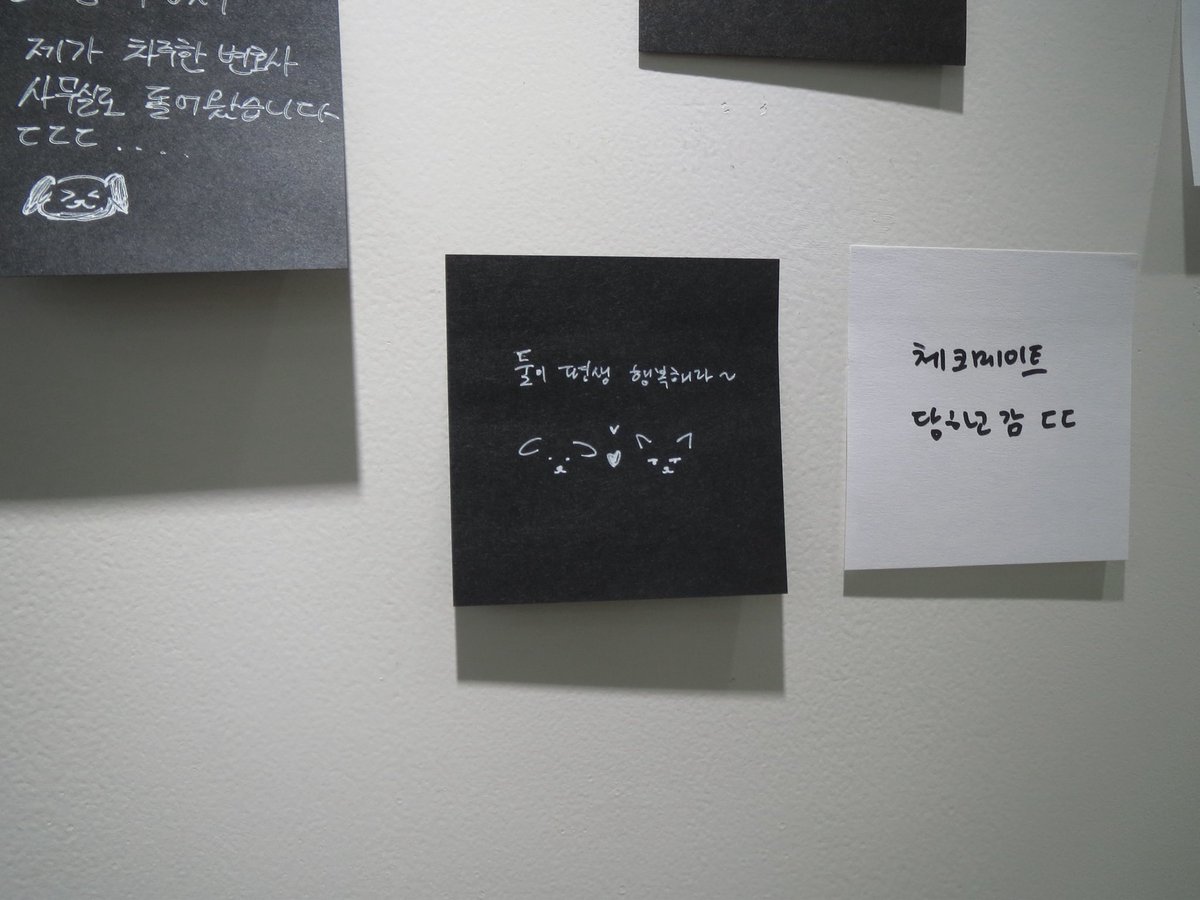 제가 차주한 변호사
사무실로 들어왔습니다
ㄷㄷㄷ....
둘이 평생 행복해라~
체크메이트
당하고 감 ㄷㄷ